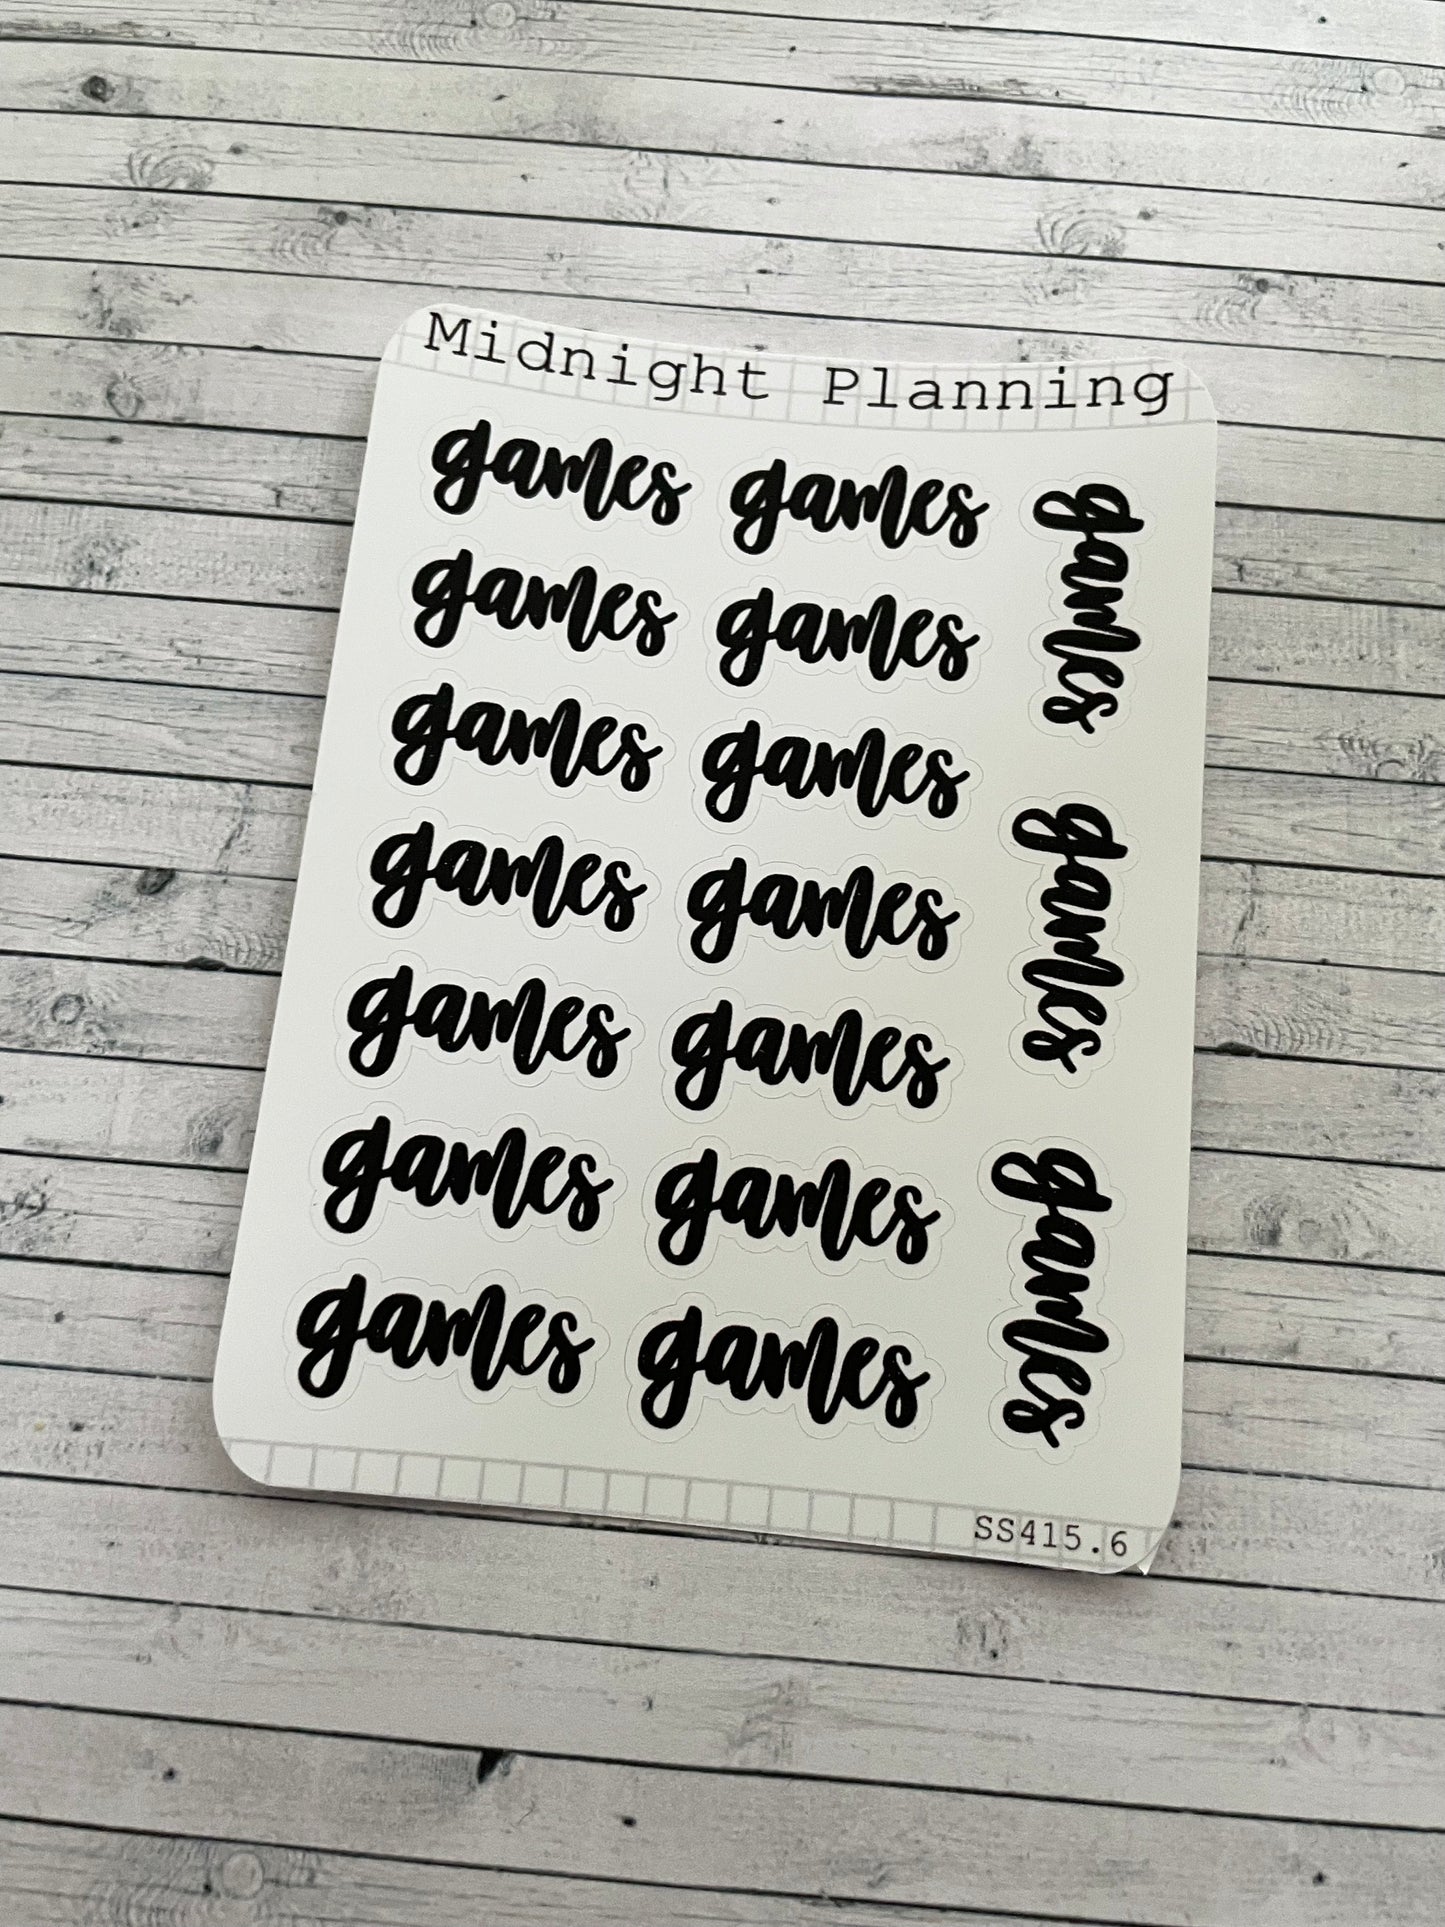 Midnight Planning
games games
games games
games games
games games
games games
games games
games games
games
games
games
SS415.6